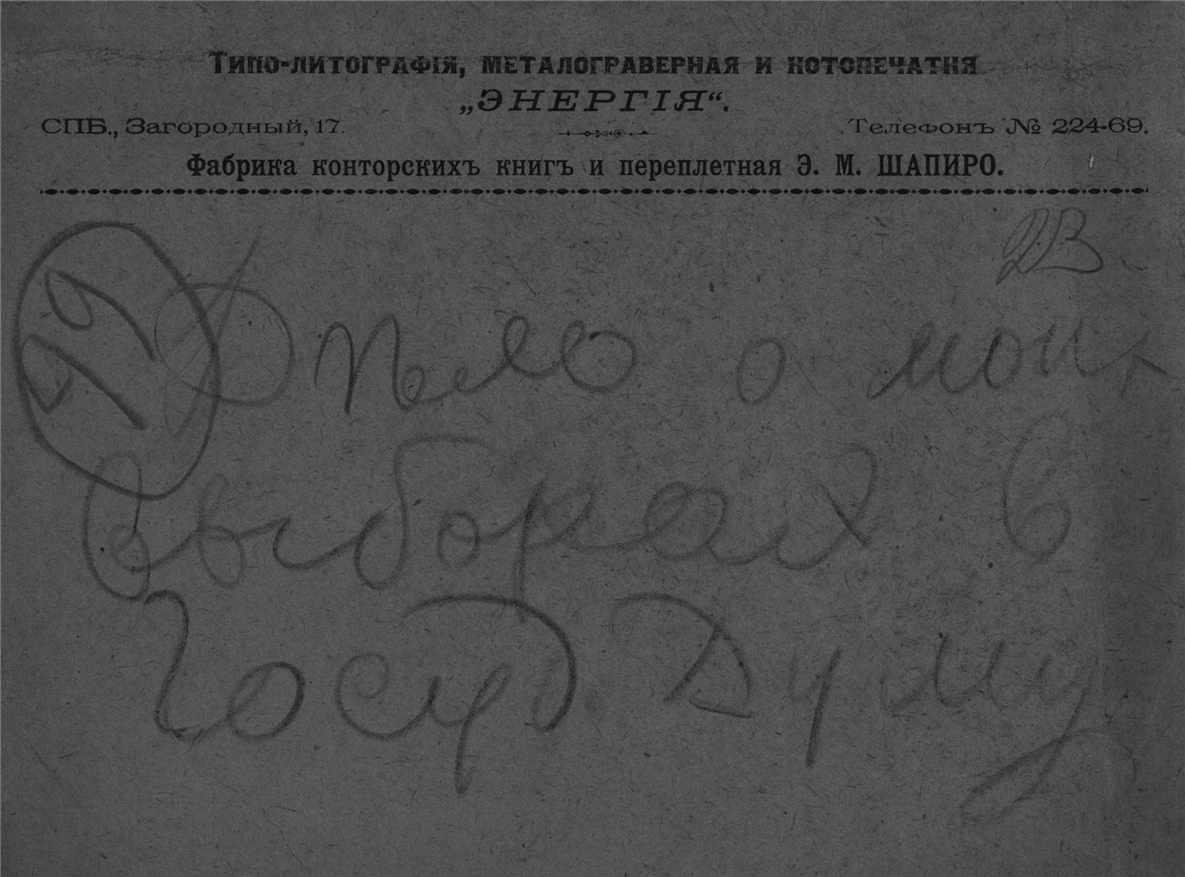 Типо-литографія, металограверная и нотопечатня
„ЭНЕРГІЯ“.
СПБ., Загородный, 17.
Телефонъ № 224-69.
Фабрика конторскихъ книгъ и переплетная Э. М. ШАПИРО.
Дѣло о моих
выборах в
Госуд. Думу